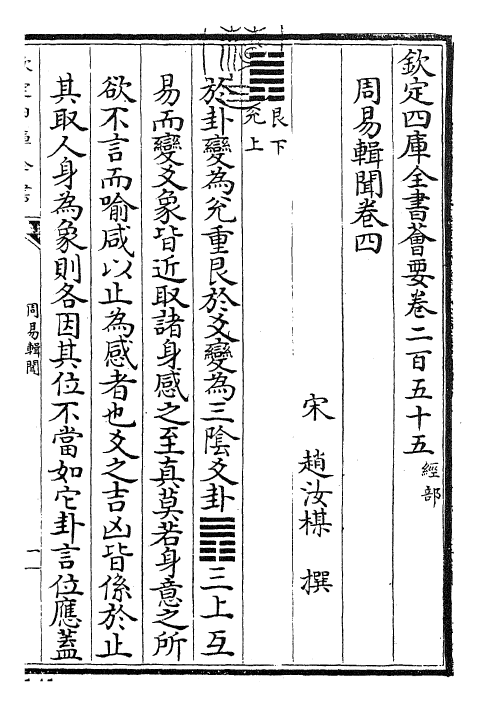 欽定四庫全書薈要卷二百五十五 經部
周易輯聞卷四
宋 趙汝楳 撰
䷞ 艮下
兊上
於卦變為兊重艮於爻變為三陰爻卦䷋三上互
易而變爻象皆近取諸身感之至真莫若身意之所
欲不言而喻咸以止為感者也爻之吉凶皆係於止
其取人身為象則各因其位不當如它卦言位應蓋
周易輯聞
一